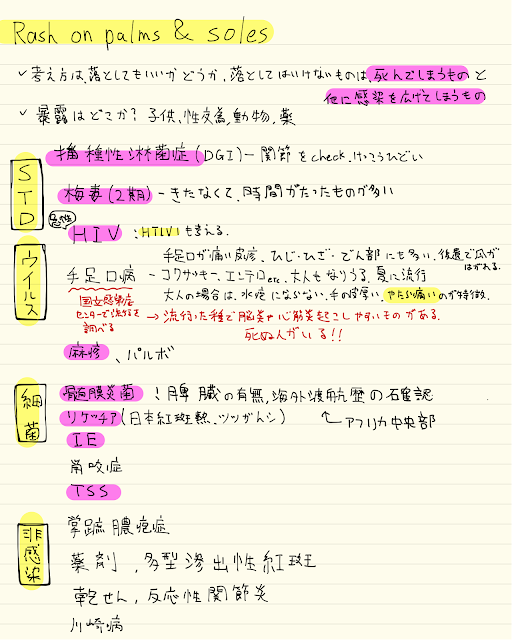 Rash on palms & soles
✓考え方は、落としてもいいかどうか、落としてはいけないものは、死んでしまうものと
他に感染を広げてしまうもの
✓暴露はどこか？子供、性交為、動物、薬
STD
播種性淋菌症(DGI)－関節をcheck、けっこうひどい
梅毒(2期)－きたなくて、時間がたったものが多い
急性
HIV:HTLV1も考える.
ウイルス
手足口が痛い皮疹、ひじ・ひざ・でん部にも多い、後農で爪が
はがれる.
手足口病－コクサッキー、エンテロetc、大人もなりうる、夏に流行
大人の場合は、水疱にならない、手の皮厚い、やたら痛いのが特徴.
国立感染症
センターで流行を
調べる
→流行った種で脳炎や心筋炎起こしやすいものがある.
死ぬ人がいる!!
麻疹、パルボ
細菌
髄膜炎菌！脾臓の有無、海外渡航歴の確認
リケッチア(日本紅斑熱、ツツガムシ)
アフリカ中央部
IE
鼠咬症
TSS
非感染
掌蹠膿疱症
薬剤，多型滲出性紅斑
乾せん，反応性関節炎
川崎病